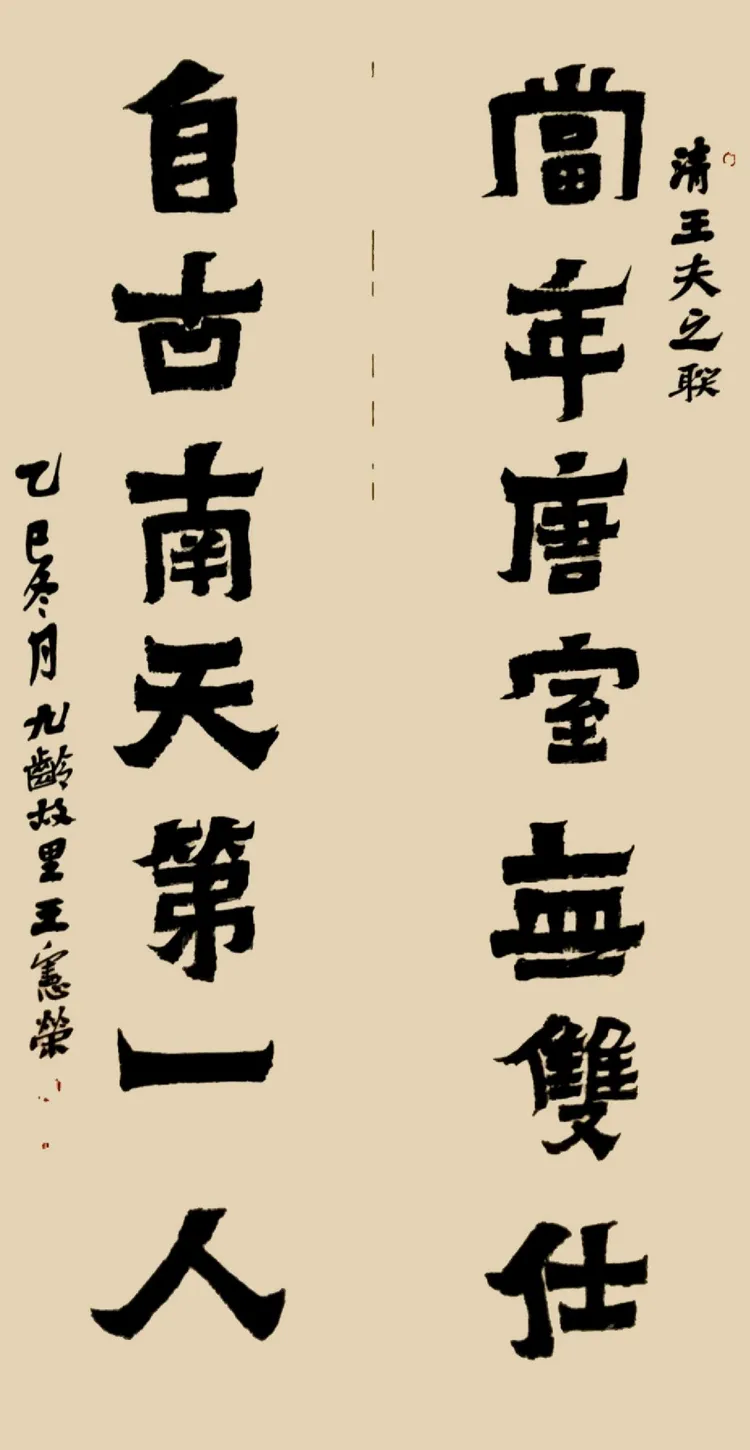 清王夫之联
當年唐室無雙仕
自古南天第一人
乙巳冬月九齡故里王憲榮